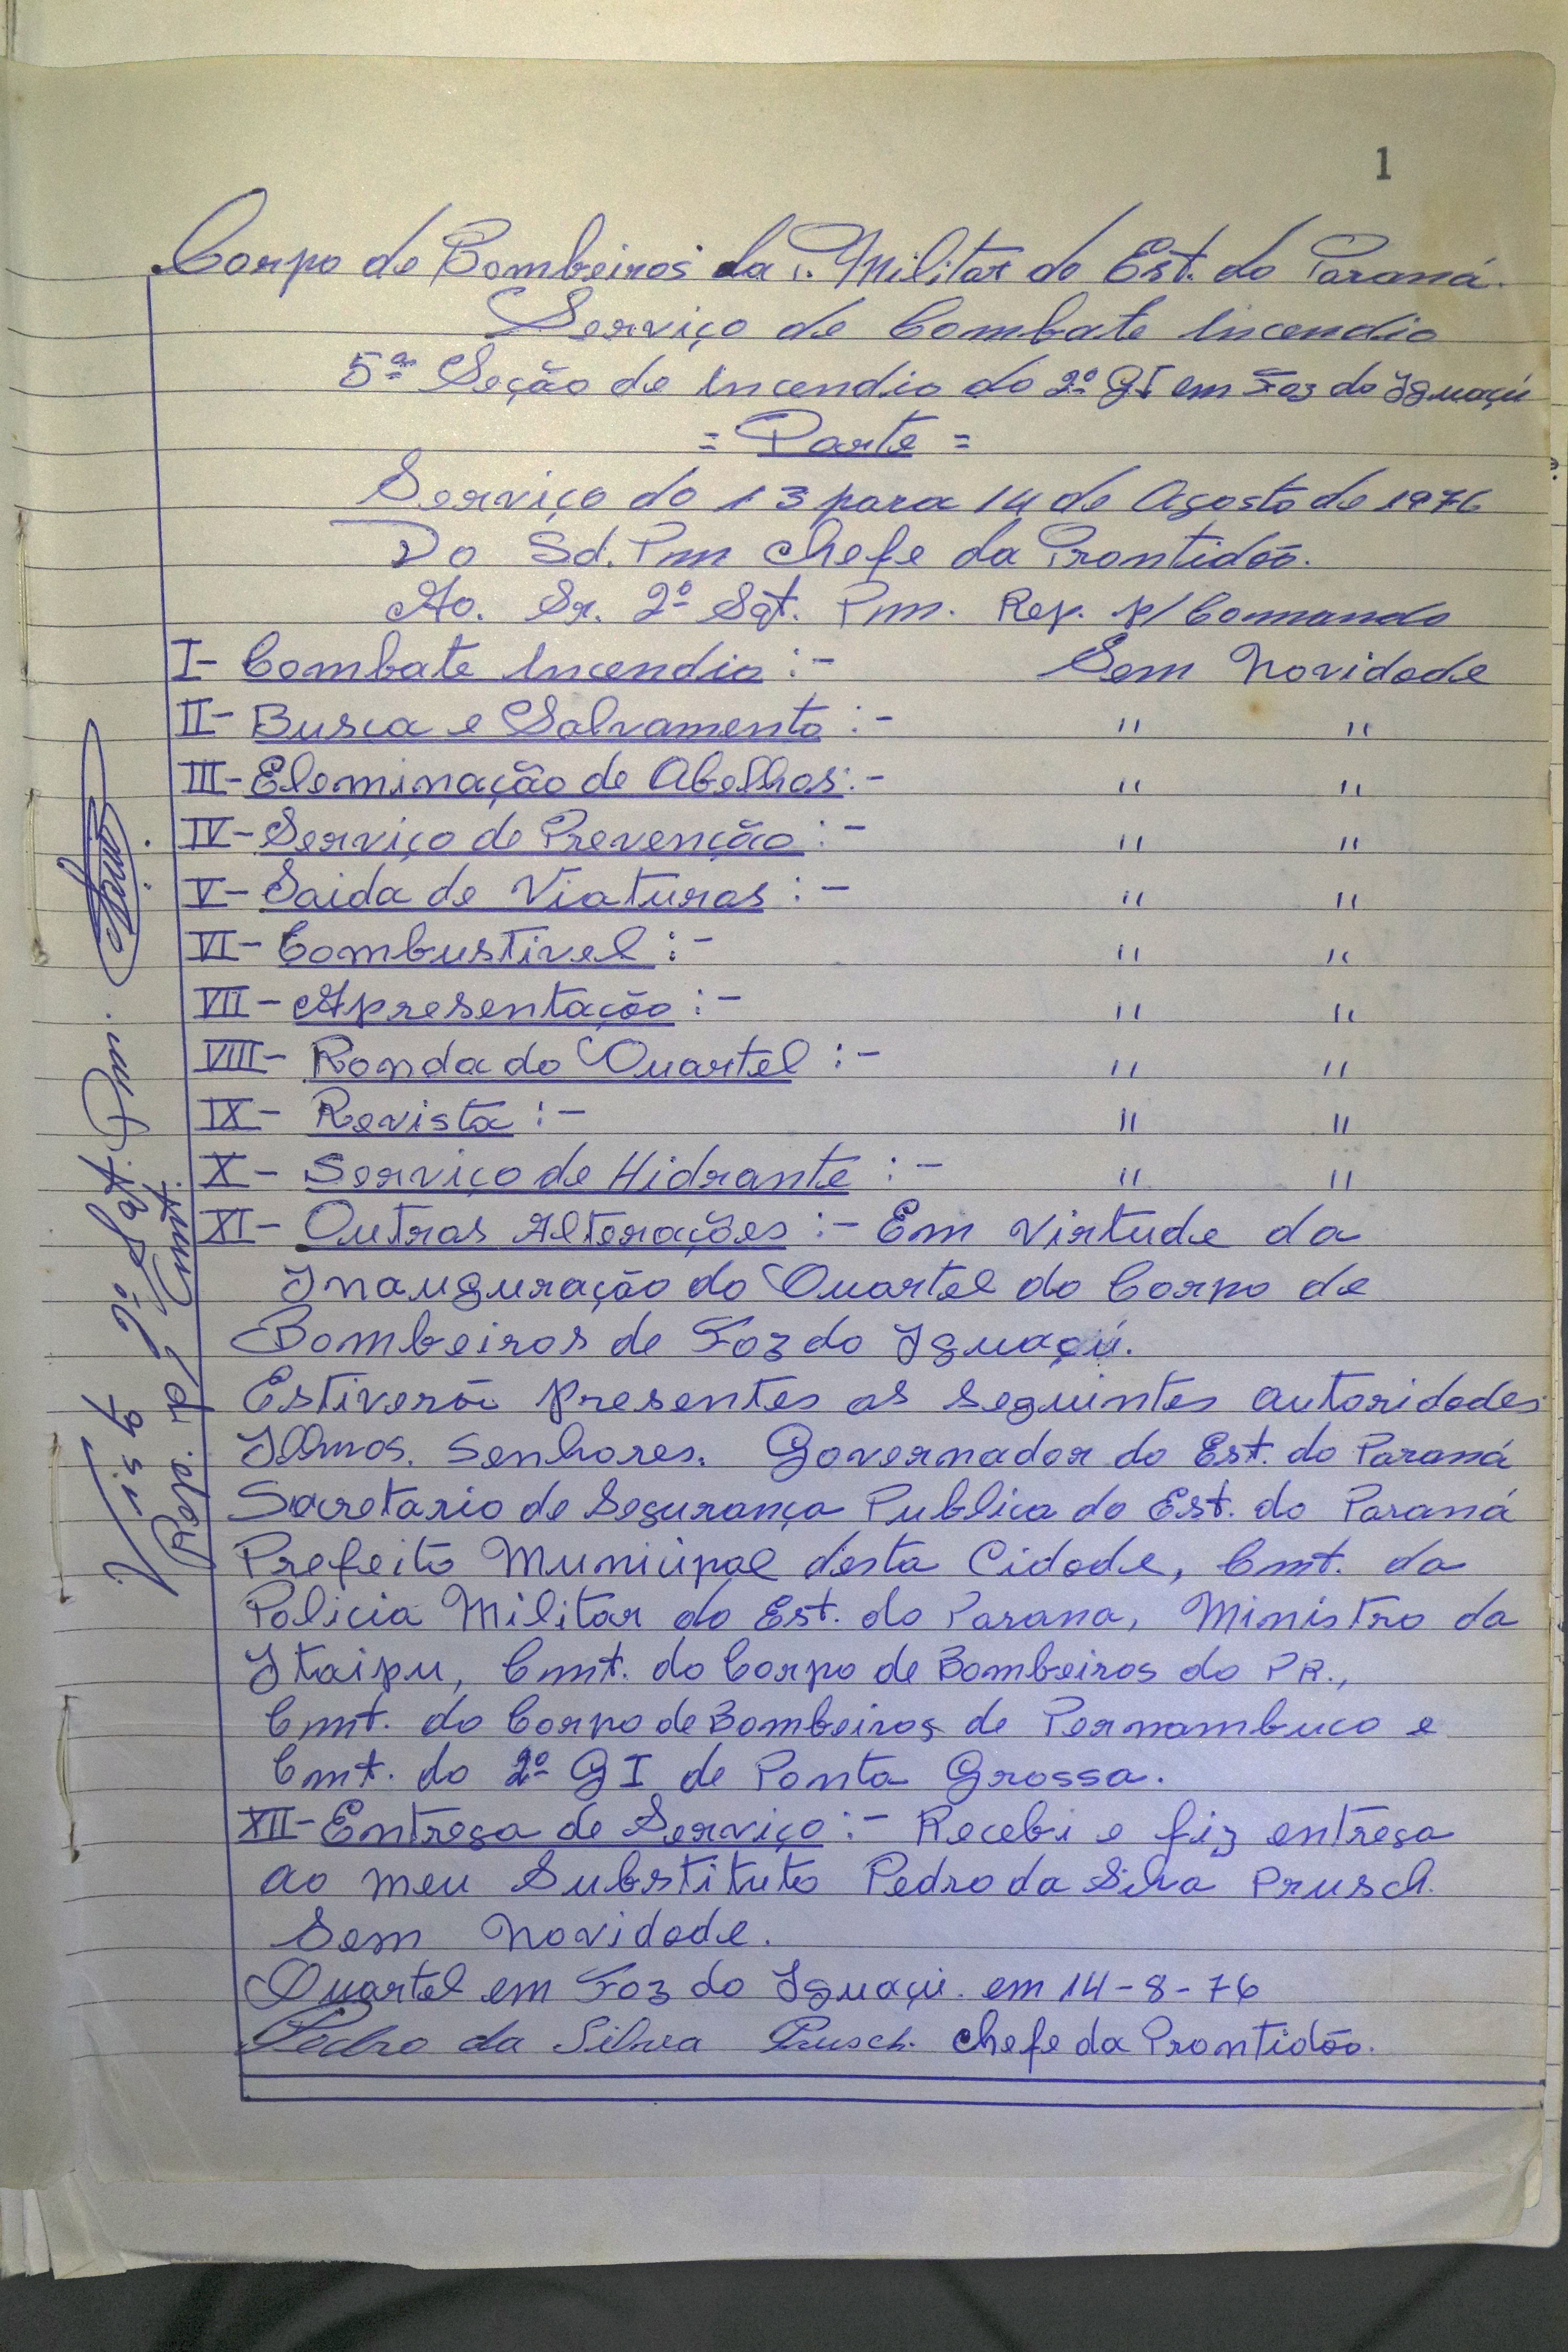 1
Corpo de Bombeiros da P. Militar do Est. do Paraná.
Serviço de Combate Incendio
5ª Seção de Incendio do 2º GI em Foz do Iguaçú
= Parte =
Serviço do 13 para 14 de Agosto de 1976
Do Sd. Pm Chefe da Prontidão.
Ao. Sr. 2º Sgt. Pm. Rep. p/ Comando
I- Combate Incendio :- Sem Novidade
II- Busca e Salvamento :- " "
III- Eleminação de Abelhas :- " "
IV- Serviço de Prevenção :- " "
V- Saida de Viaturas :- " "
VI- Combustivel :- " "
VII- Apresentação :- " "
VIII- Ronda do Quartel :- " "
IX- Revista :- " "
X- Serviço de Hidrante :- " "
XI- Outras Alterações :- Em virtude da
Inauguração do Quartel do Corpo de
Bombeiros de Foz do Iguaçú.
Estiverão presentes as seguintes autoridades
Ilmos. Senhores. Governador do Est. do Paraná
Secretario de Segurança Publica do Est. do Paraná
Prefeito Municipal desta Cidade, Cmt. da
Policia Militar do Est. do Parana, Ministro da
Itaipu, Cmt. do Corpo de Bombeiros do PR.,
Cmt. do Corpo de Bombeiros de Pernambuco e
Cmt. do 2º GI de Ponta Grossa.
XII- Entrega de Serviço :- Recebi e fiz entrega
ao meu Substituto Pedro da Silva Prusch.
Sem novidade.
Quartel em Foz do Iguaçú. em 14-8-76
Pedro da Silva Prusch. Chefe da Prontidão.
Visto 2º Sgt. Pm.
Rep. p/ Cmt.